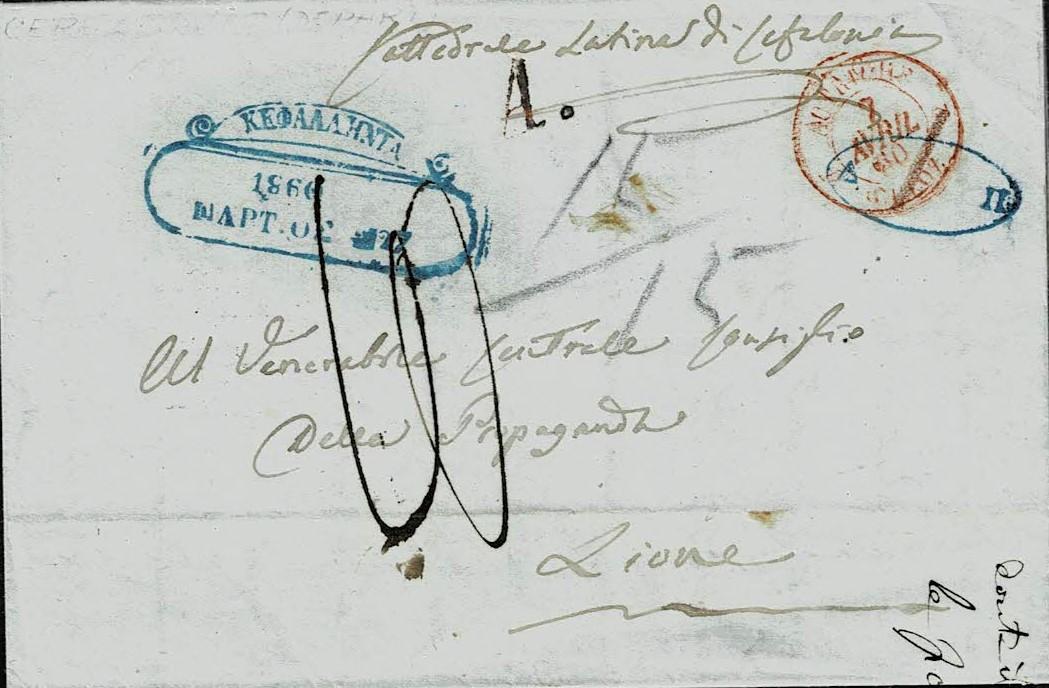 Cattedrale Latina di Cefalonia
A.
ΚΕΦΑΛΛΗΝΙΑ
1860
ΜΑΡΤ.ΟΣ 27
7
AVRIL
60
15
15
Al Venerabile Centrale Consiglio
Della Propaganda
Lione